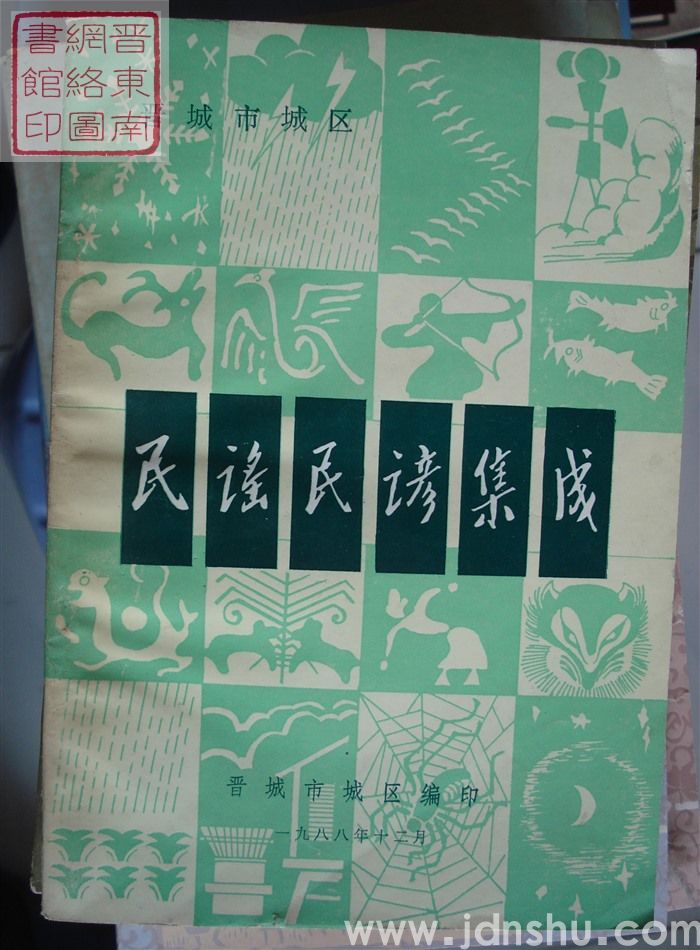 晋東南
網絡圖
書館印
晋城市城区
民谣民谚集成
晋城市城区编印
一九八八年十二月
www.jdnshu.com